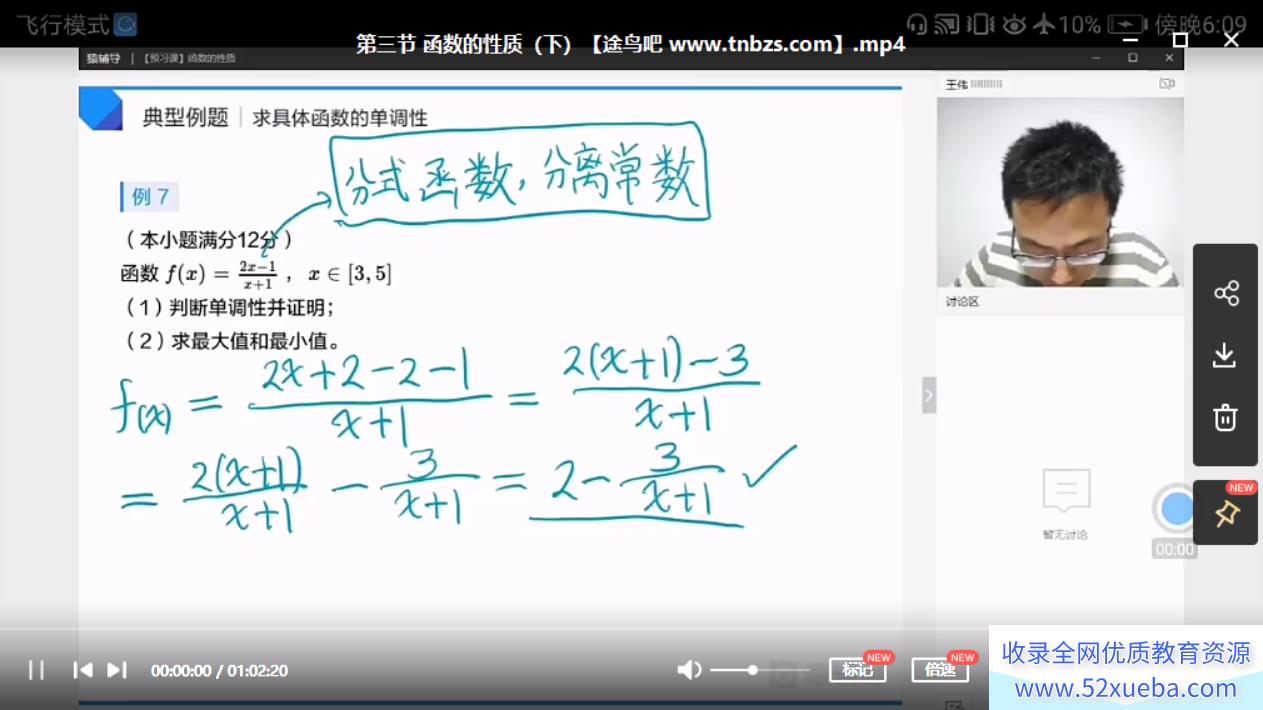 飞行模式
10% 傍晚6:09
第三节 函数的性质（下）【途鸟吧 www.tnbzs.com】.mp4
猿辅导 | 【预习课】函数的性质
王伟
典型例题 | 求具体函数的单调性
分式函数，分离常数
例 7
（本小题满分12分）
函数 f(x) = \frac{2x-1}{x+1} ， x ∈ [3, 5]
（1）判断单调性并证明；
（2）求最大值和最小值。
f(x) = \frac{2x+2-2-1}{x+1} = \frac{2(x+1)-3}{x+1}
= \frac{2(x+1)}{x+1} - \frac{3}{x+1} = 2 - \frac{3}{x+1} ✓
讨论区
暂无讨论
NEW
00:00
00:00:00 / 01:02:20
标记 NEW
倍速 NEW
收录全网优质教育资源
www.52xueba.com